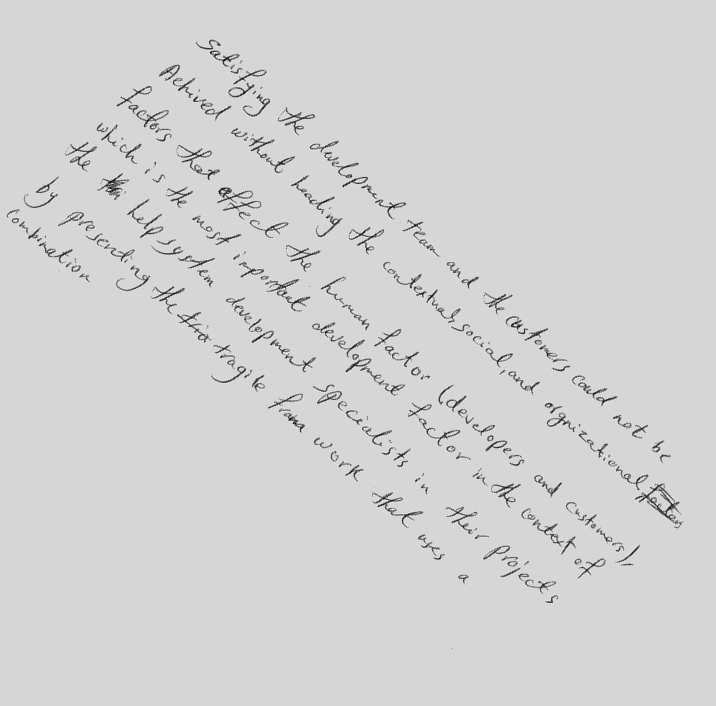 Satisfying the development team and the customers could not be
Achived without heading the contextual, social, and orgnizational
factors that affect the human factor (developers and customers),
which is the most important development factor in the context of
the help system development specialists in their projects
by presenting the tragile frame work that uses a
combination